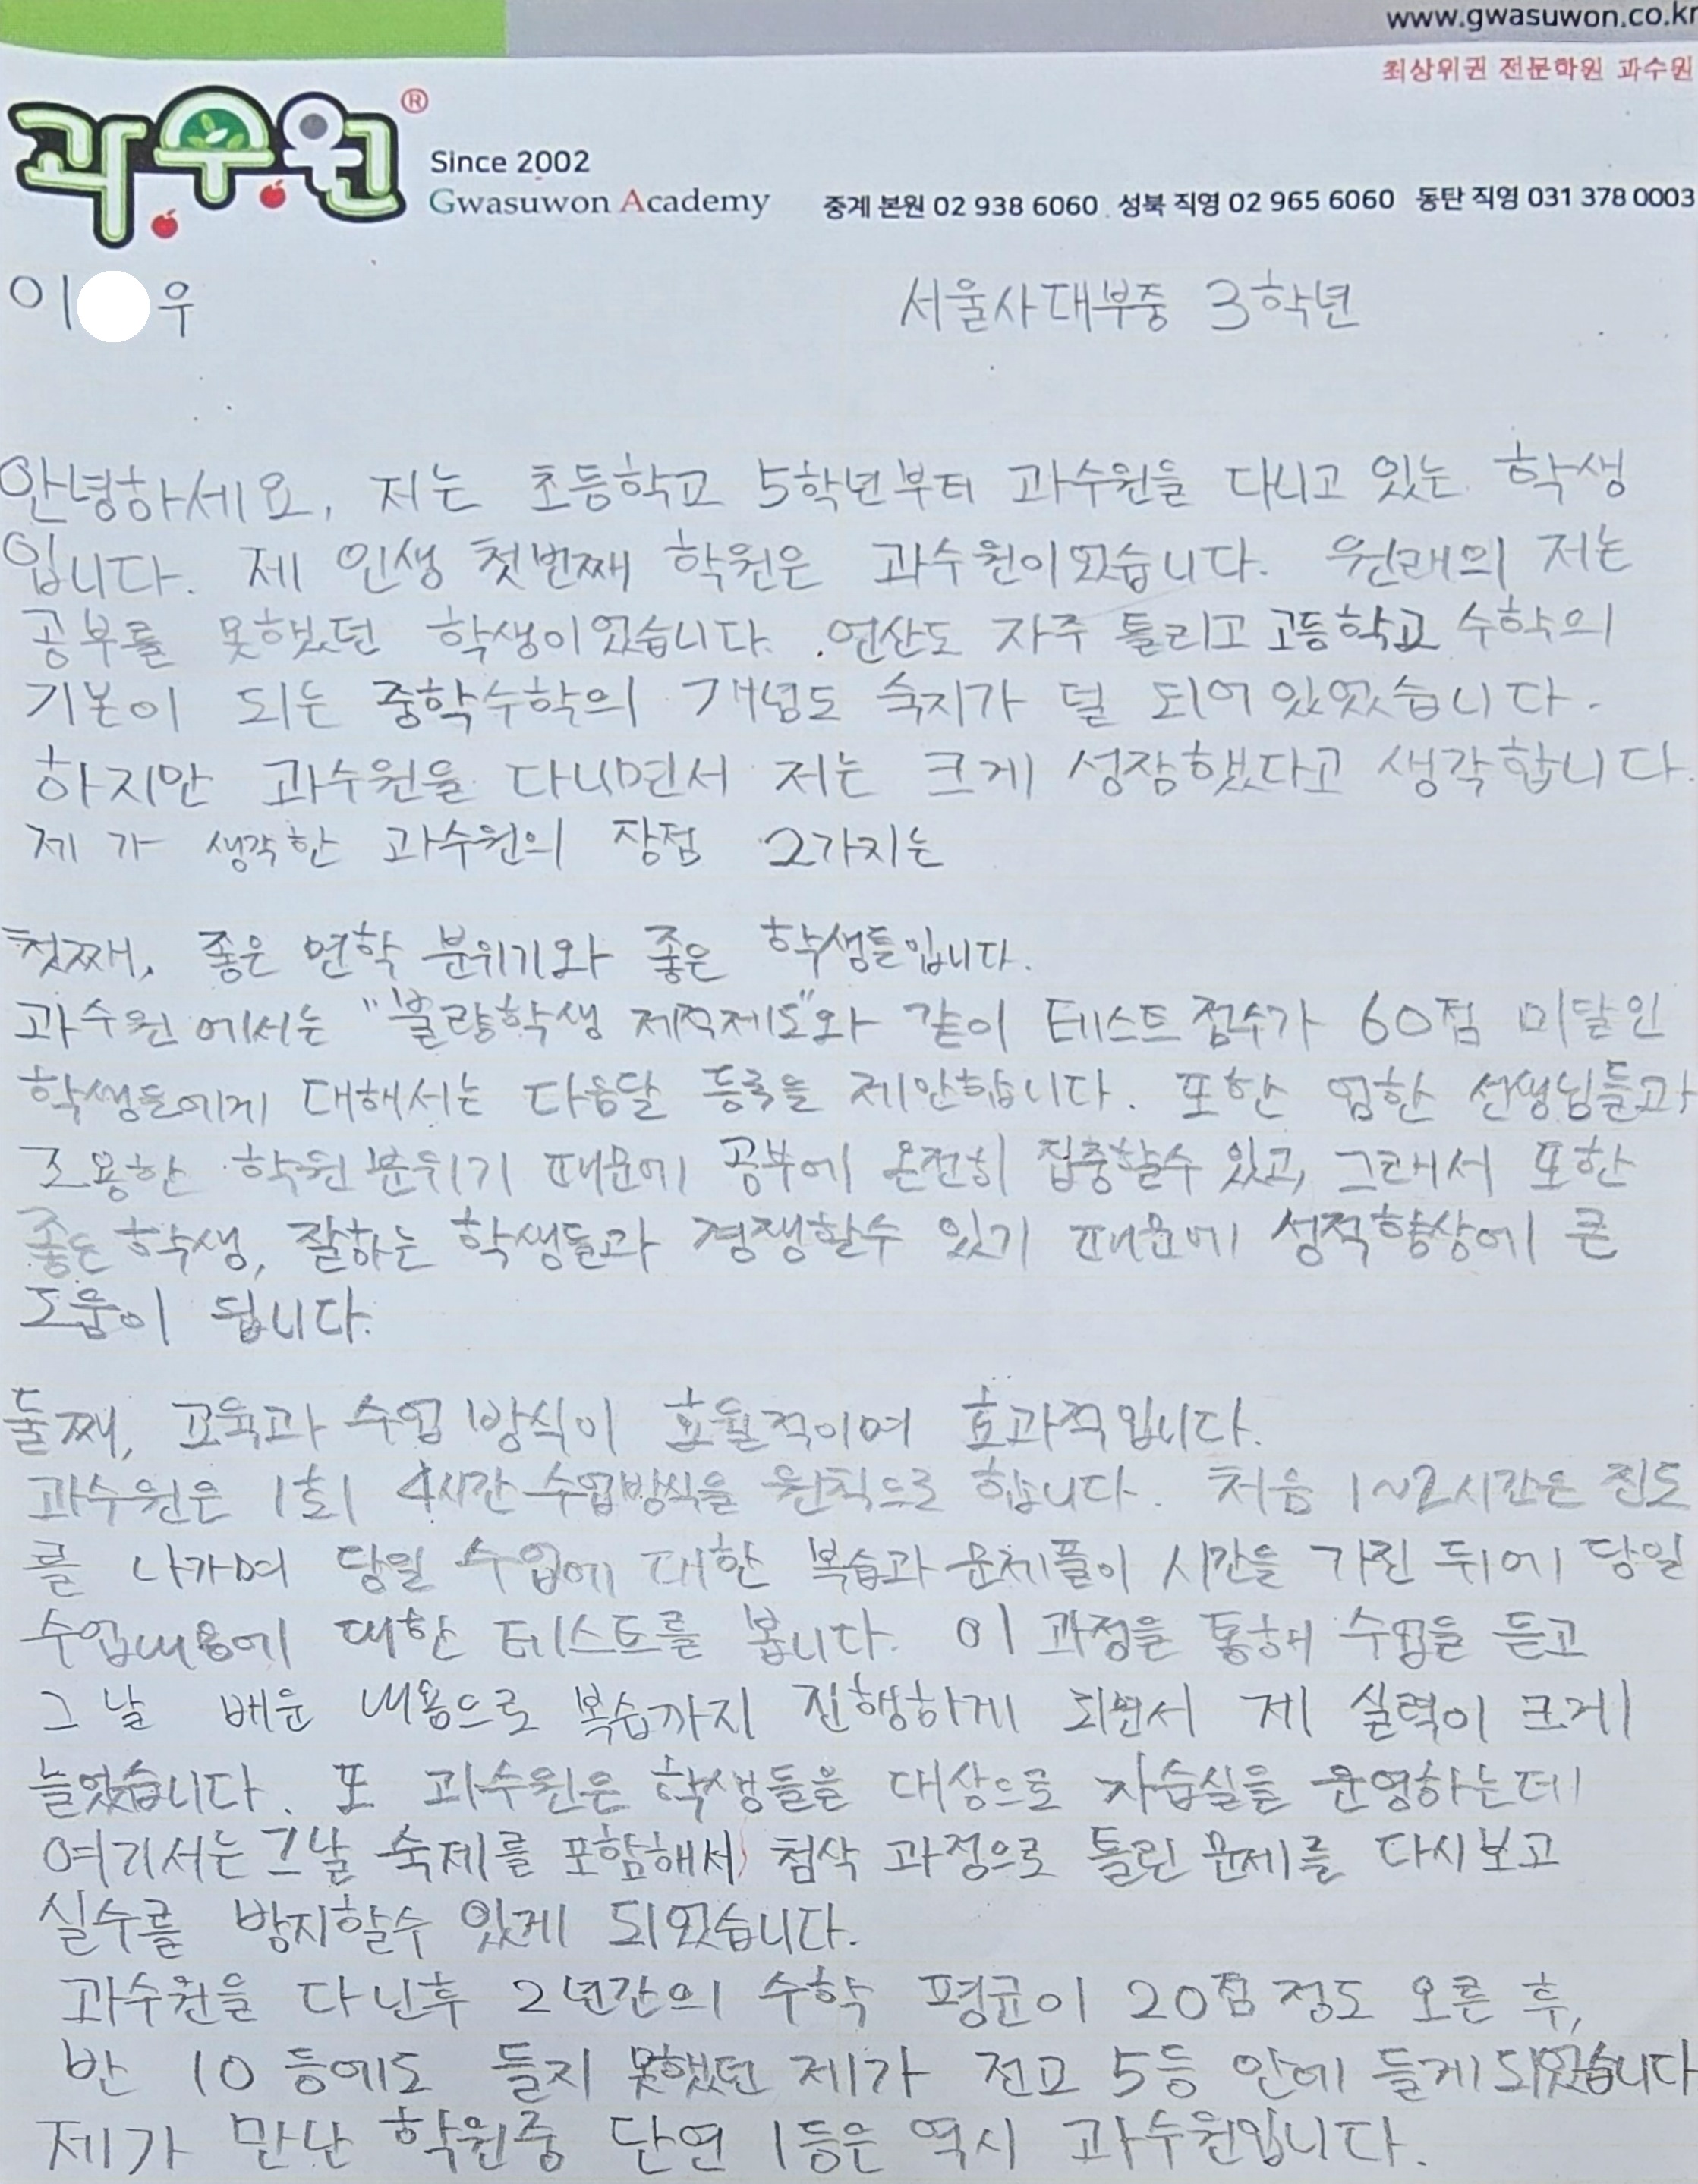 www.gwasuwon.co.kr
최상위권 전문학원 과수원
과수원®
Since 2002
Gwasuwon Academy 중계 본원 02 938 6060 성북 직영 02 965 6060 동탄 직영 031 378 0003
이 우 서울사대부중 3학년
안녕하세요, 저는 초등학교 5학년부터 과수원을 다니고 있는 학생
입니다. 제 인생 첫번째 학원은 과수원이었습니다. 원래의 저는
공부를 못했던 학생이었습니다. 연산도 자주 틀리고 고등학교 수학의
기본이 되는 중학수학의 개념도 숙지가 덜 되어있었습니다.
하지만 과수원을 다니면서 저는 크게 성장했다고 생각합니다.
제가 생각한 과수원의 장점 2가지는
첫째, 좋은 면학 분위기와 좋은 학생들입니다.
과수원에서는 "불량학생 제적제도"와 같이 테스트 점수가 60점 미달인
학생들에게 대해서는 다음달 등록을 제한합니다. 또한 엄한 선생님들과
조용한 학원 분위기 때문에 공부에 온전히 집중할수 있고, 그래서 또한
좋은 학생, 잘하는 학생들과 경쟁할수 있기 때문에 성적향상에 큰
도움이 됩니다.
둘째, 교육과 수업 방식이 효율적이며 효과적입니다.
과수원은 1회 4시간 수업방식을 원칙으로 합니다. 처음 1~2시간은 진도
를 나가며 당일 수업에 대한 복습과 문제풀이 시간을 가진 뒤에 당일
수업내용에 대한 테스트를 봅니다. 이 과정을 통해 수업을 듣고
그날 배운 내용으로 복습까지 진행하게 되면서 제 실력이 크게
늘었습니다. 또 과수원은 학생들을 대상으로 자습실을 운영하는데
여기서는 그날 숙제를 포함해서 첨삭 과정으로 틀린 문제를 다시보고
실수를 방지할수 있게 되었습니다.
과수원을 다닌후 2년간의 수학 평균이 20점 정도 오른 후,
반 10등에도 들지 못했던 제가 전교 5등 안에 들게되었습니다
제가 만난 학원중 단연 1등은 역시 과수원입니다.